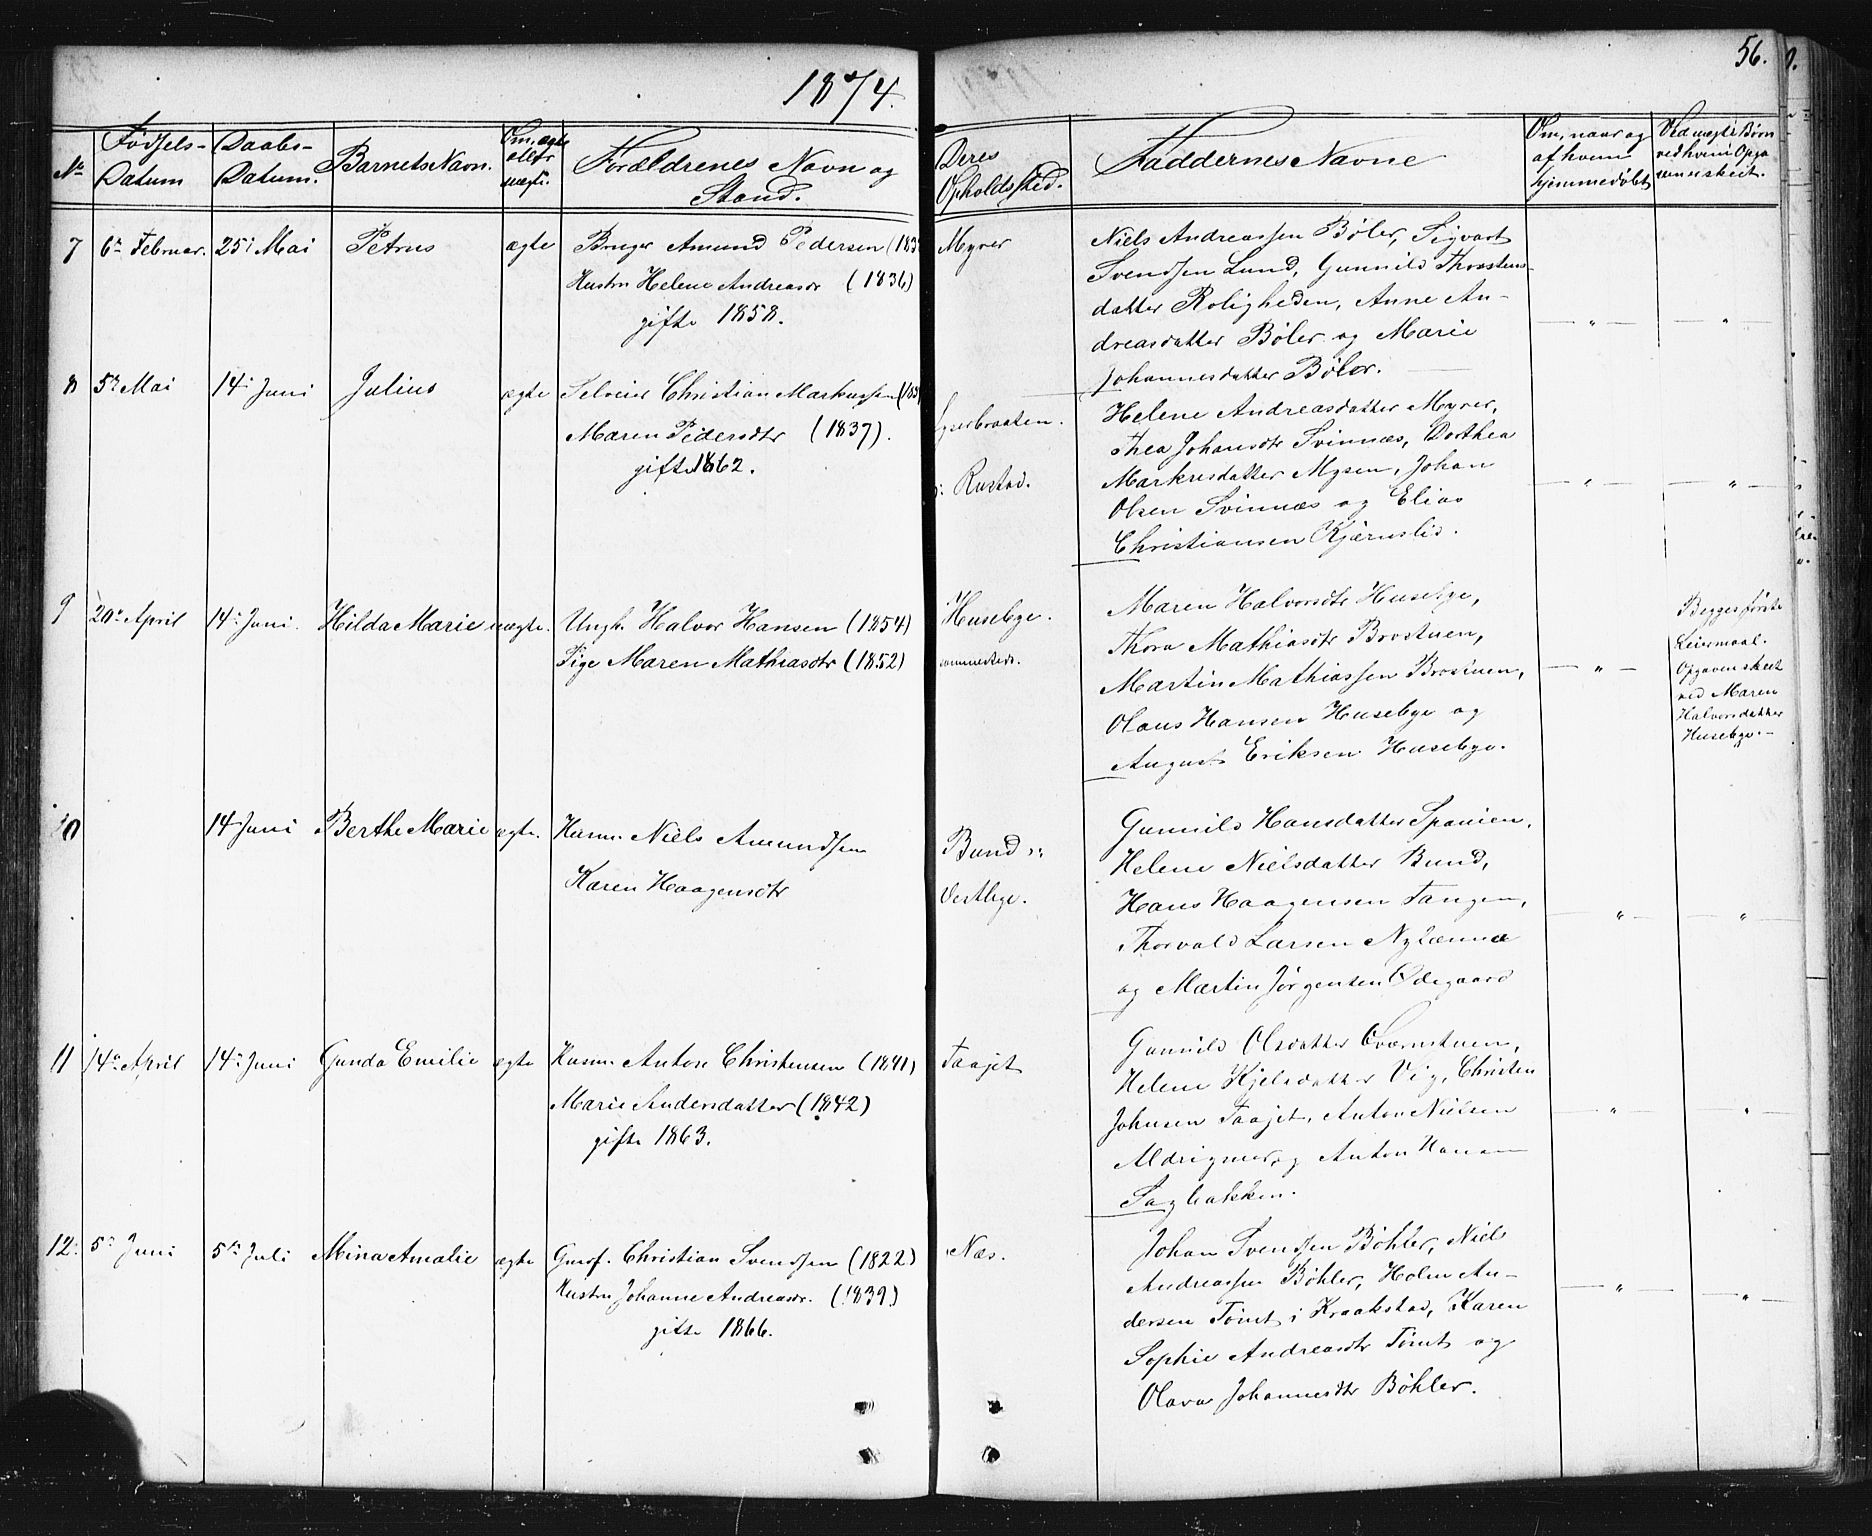 1874.
56.
No
Fødsels-
Datum
Daabs-
Datum.
Barnets Navn.
Om ægte
eller
uægte.
Forældrenes Navn og
Stand.
Deres
Opholdssted.
Faddernes Navne
Om, naar og
af hvem
hjemmedøbt
Ved uægte Børn
ved hvem Opga
ven er skeet.
7 6te Februar. 25i Mai Petrus ægte Bruger Amund Pedersen (183
Hustru Helene Andreasdr (1836)
gifte 1858.
Myrer
Niels Andreassen Bøler, Sigvart
Svendsen Lund, Gunnild Thorstens-
datter Roligheden, Anne An-
dreasdatter Bøler og Marie
Johannesdatter Bøler.
— " — — " —
8 5te Mai 14i Juni Julius ægte Selveier Christian Markussen (183
Maren Pedersdtr (1837).
gifte 1862.
Rustad.
Helene Andreasdatter Myrer,
Thea Johansdtr Svinnæs, Dorthea
Markusdatter Mysen, Johan
Olsen Svinnæs og Elias
Christiansen Kjærnslid.
— " — — " —
9 20de April 14i Juni. Hilda Marie uægte. Ungk. Halvor Hansen (1854)
Pige Maren Mathiasdtr (1852)
Husebye.
sammesteds.
Maren Halvorsdtr Husebye,
Thora Mathiasdtr Brostuen,
Martin Mathiassen Brostuen,
Olaus Hansen Husebye og
August Eriksen Husebye.
— " —
Begges første
Leiermaal.
Opgaven skeet
ved Maren
Halvorsdatter
Husebye.-
10 14 Juni Berthe Marie ægte. Husm. Niels Amundsen
Karen Haagensdtr
Bund
Vestbye.
Gunnild Hansdatter Spanien,
Helene Nielsdatter Bund,
Hans Haagensen Tangen,
Thorvald Larsen Nylænna
og Martin Jørgensen Ødegaard
— " — — " —
11 14de April 14i Juni Gunda Emilie ægte Husm. Anton Christensen (1841)
Marie Andersdatter (1842)
gifte 1863.
Taajet
Gunnild Olsdatter Qværnstuen,
Helene Kjelsdatter Vig, Christen
Johnsen Taajet, Anton Nielsen
og Anton Hansen
Sagbakken.
— " — — " —
12. 5te Juni 5te Juli Mina Amalie ægte Gmsf. Christian Svendsen (1822)
Hustru Johanne Andreasdr. (1839)
gifte 1866.
Næs.
Johan Svendsen Bøhler, Niels
Andreassen Bøhler, Holm An-
dersen Tomt i Kraakstad, Karen
Sophie Andreasdtr Tomt og
Olava Johannesdtr Bøhler.
— " — — " —